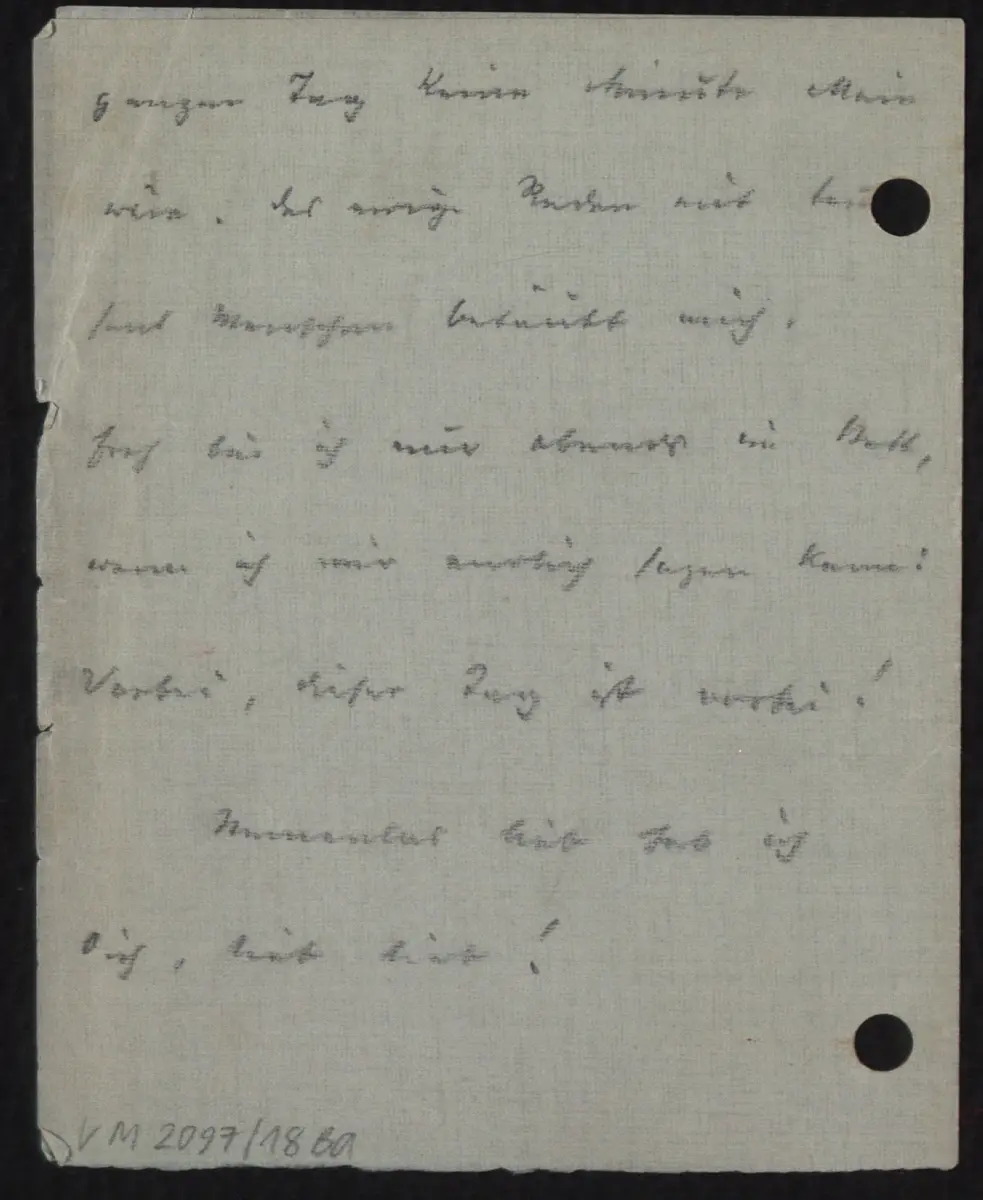 ganzen Tag keine Minute Mein
wäre. Das ewige Reden mit tau
send Menschen betäubt mich.
Froh bin ich nur abends im Bett,
wenn ich mir endlich sagen kann:
Vorbei, dieser Tag ist vorbei!
Namenlos lieb hab ich
Dich, lieb lieb!
VM 2097/18 Ba